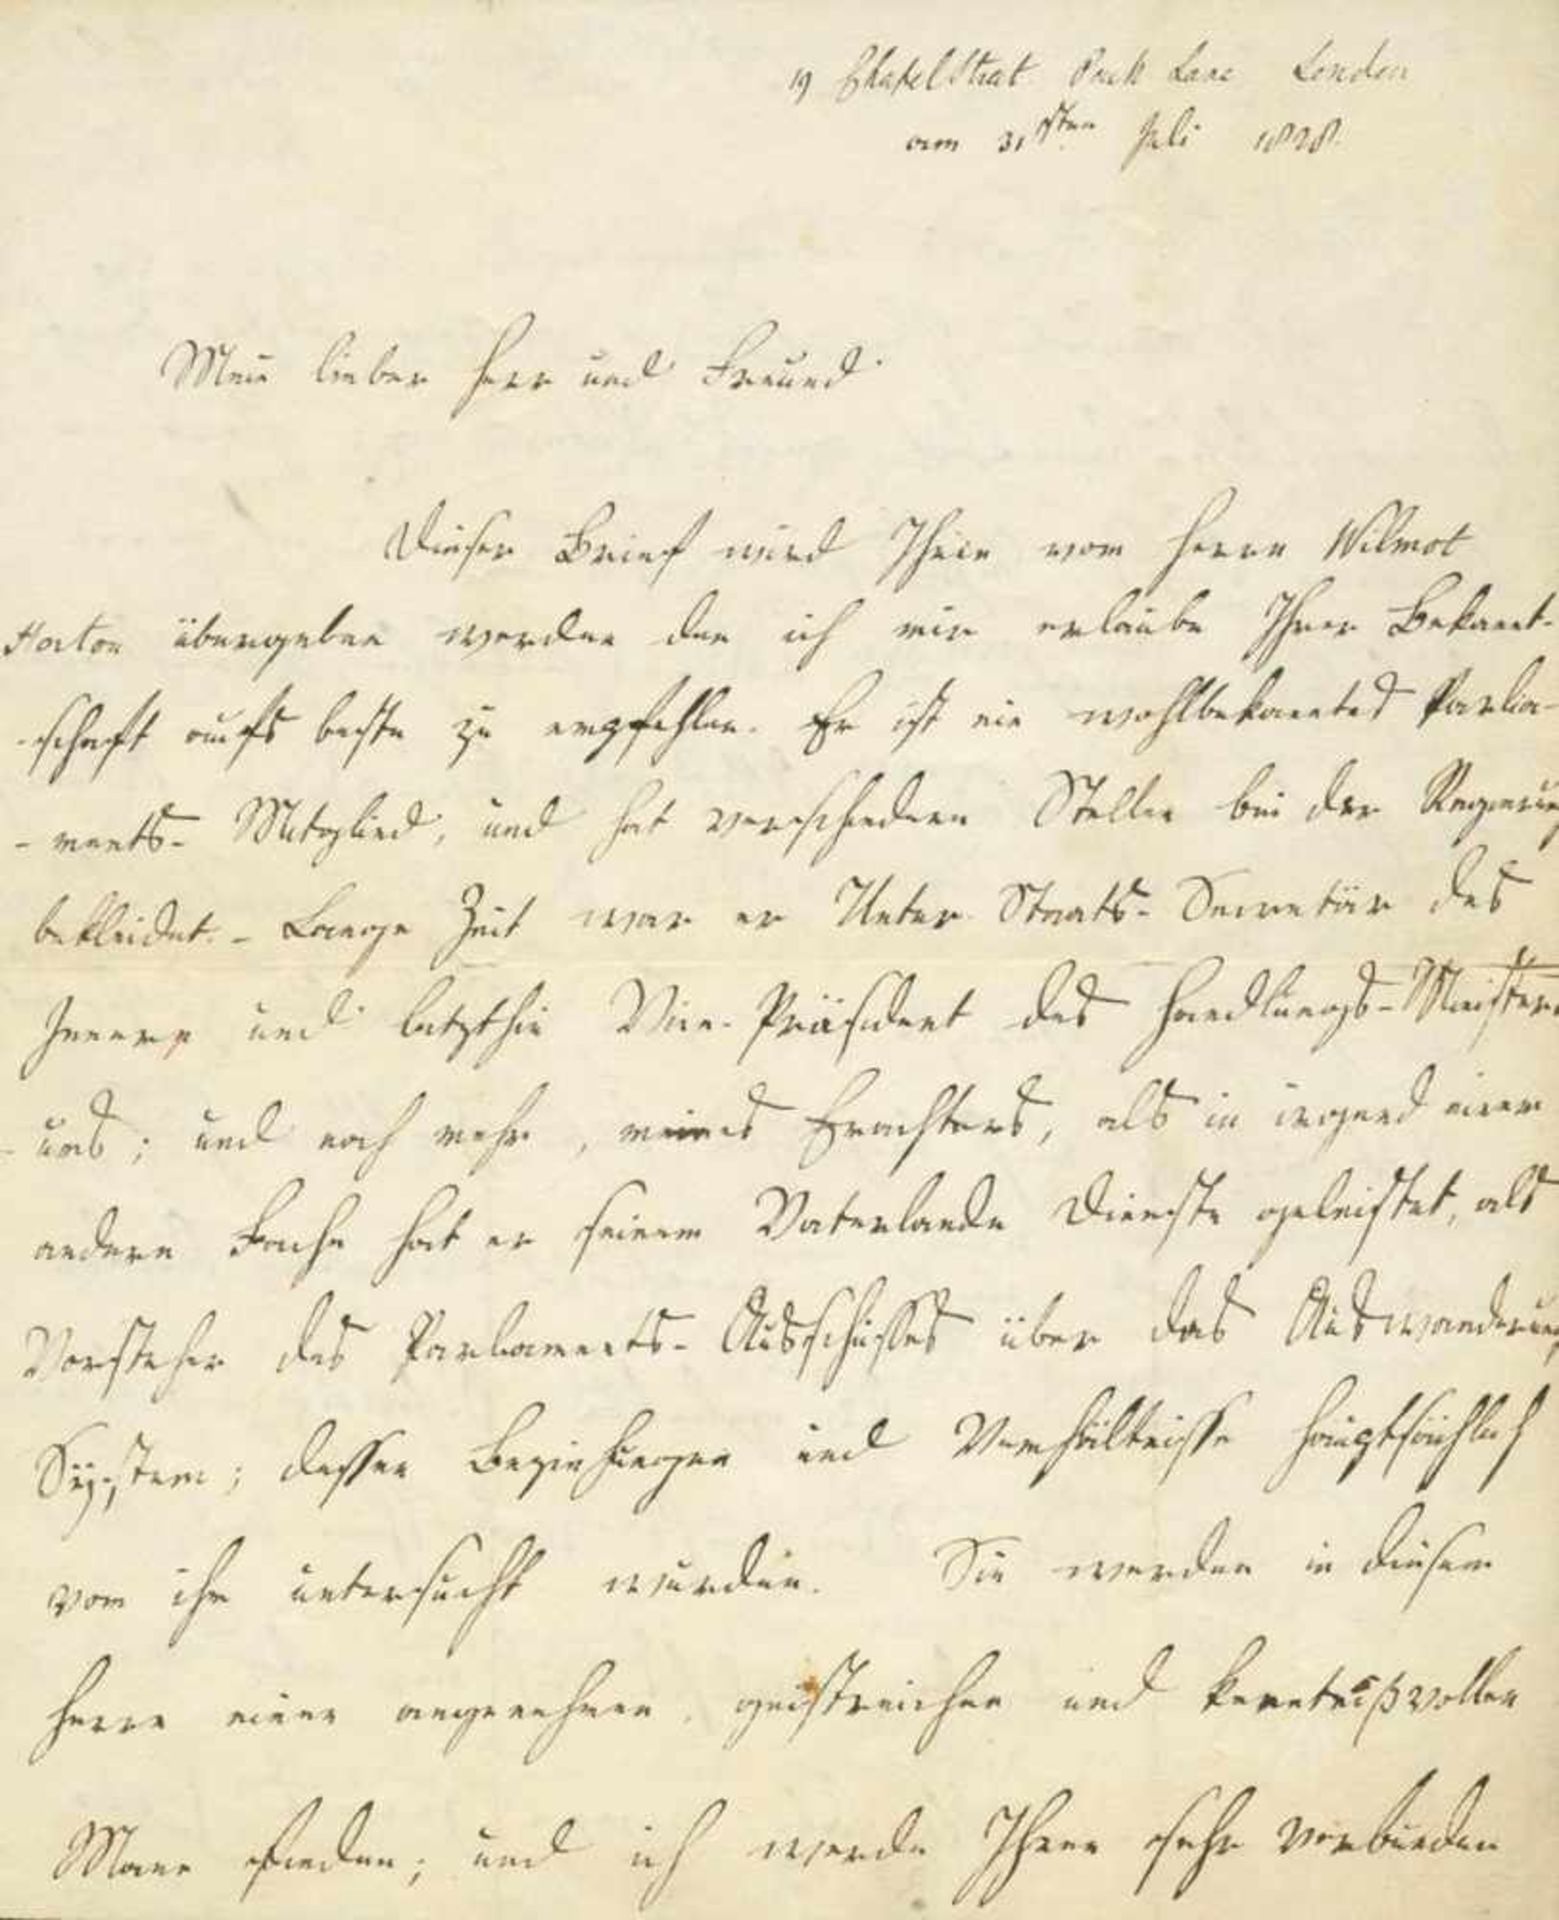 19 Chapel Street Park Lane London
am 31sten Juli 1828.
Mein lieber Herr und Freund.
Dieser Brief wird Ihnen vom Herrn Wilmot
Horton übergeben werden den ich mir erlaube Ihrer Bekannt-
-schaft aufs beste zu empfehlen. Er ist ein wohlbekanntes Parlia-
-ments-Mitglied, und hat verschiedene Stellen bei der Regierung
bekleidet. - Lange Zeit war er Unter Staats-Secretär des
Innern und letzthin Vice-Präsident des Handlungs-Minister-
-iums; und noch mehr, meines Erachtens, als in irgend einem
andern Fache hat er seinem Vaterlande Dienste geleistet, als
Vorsteher des Parlaments-Ausschusses über das Auswanderungs
System; dessen Beziehungen und Verhältnisse hauptsächlich
von ihm untersucht wurden. Sie werden in diesem
Herrn einen angenehmen, geistreichen und kentnißvollen
Mann finden; und ich werde Ihnen sehr verbunden